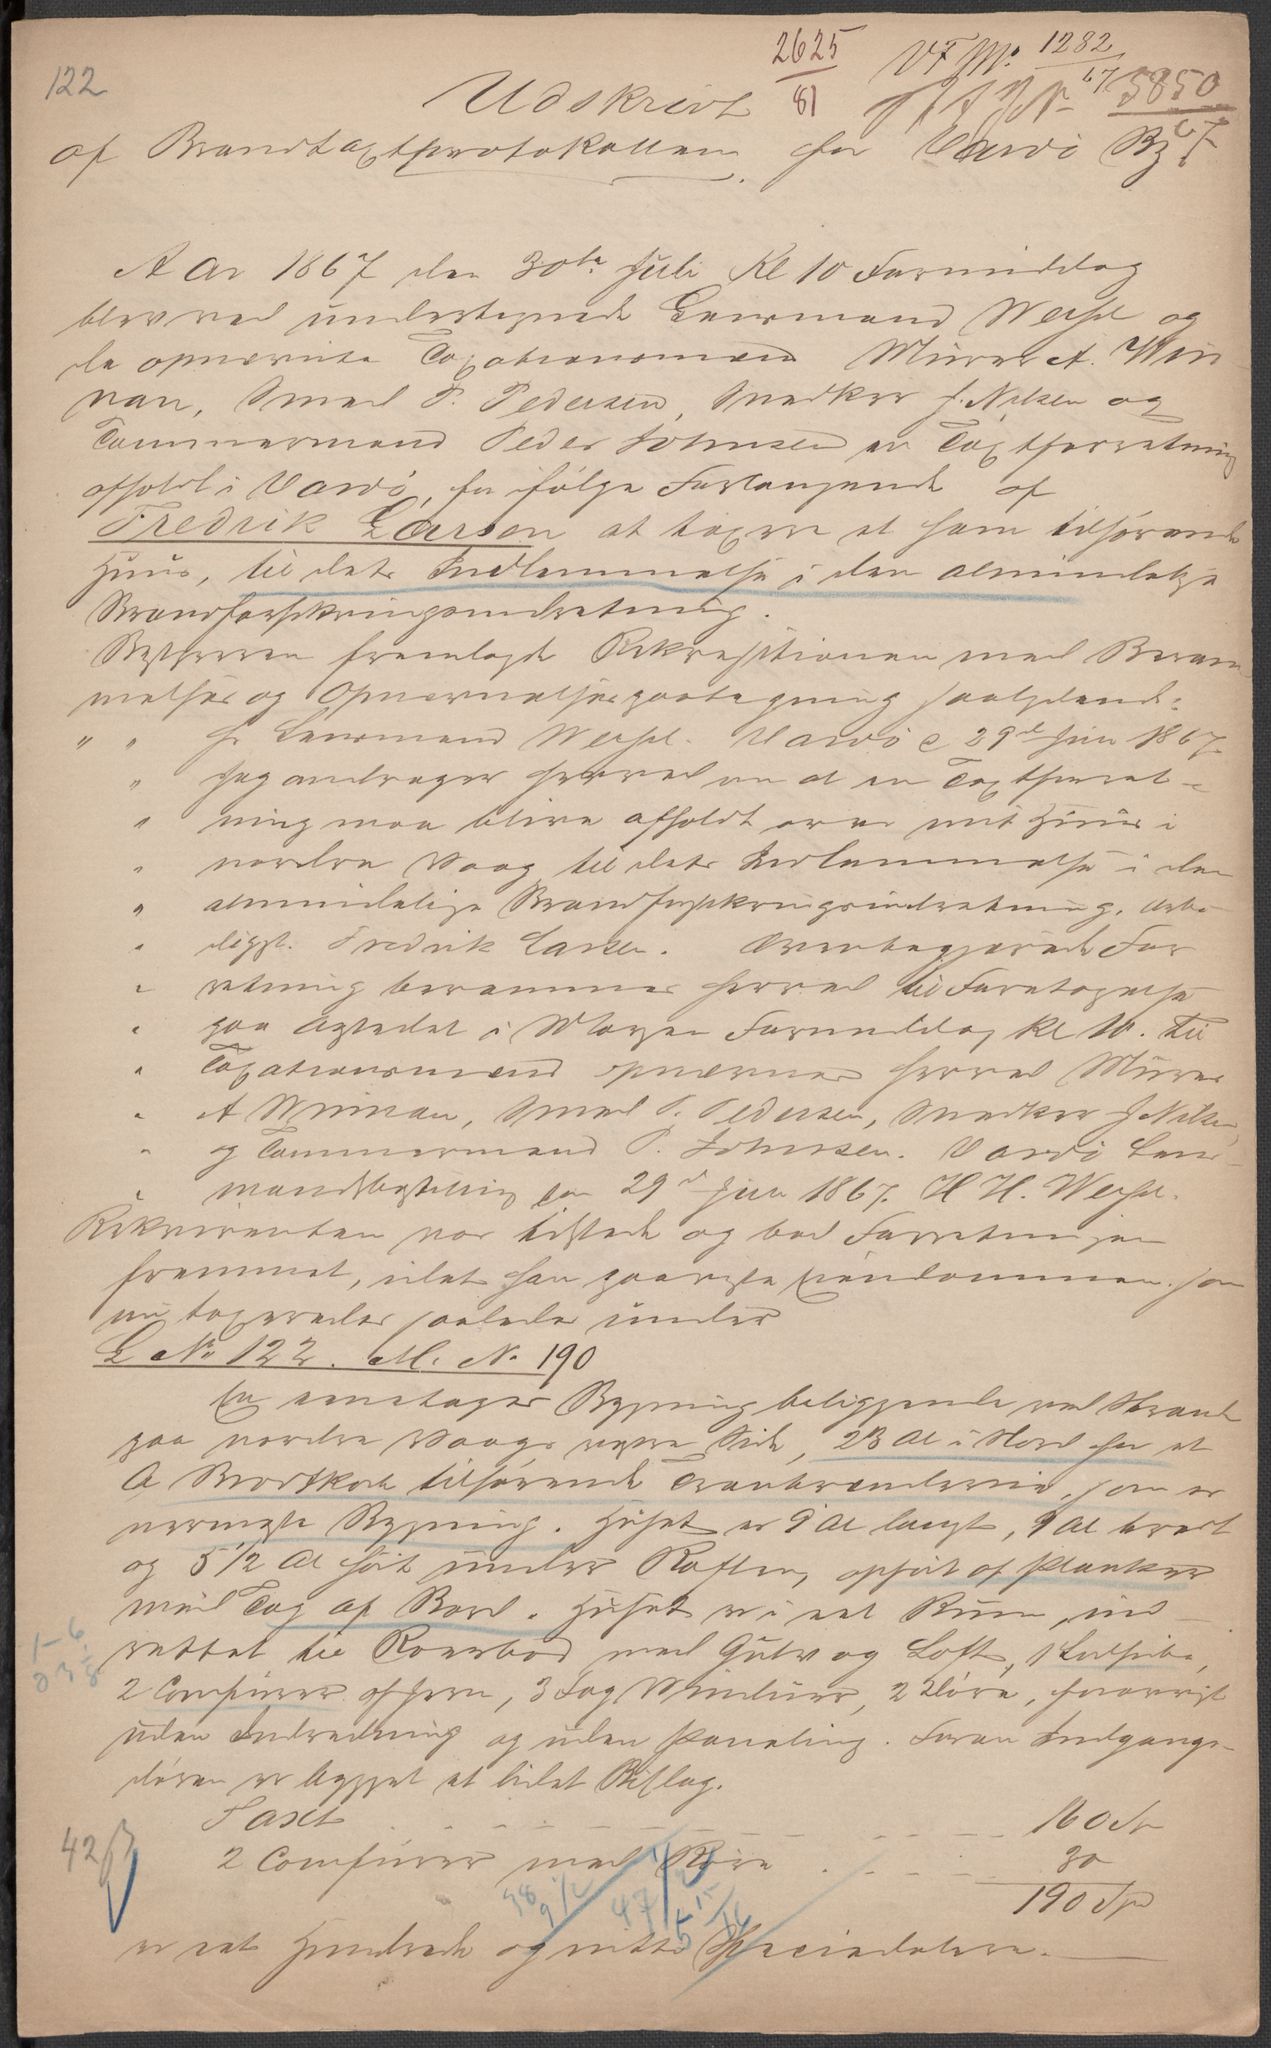 122
2625
81
VF No 1282
67
5850
67
Udskrivt
af Brandtaxtprotokollen for Vardö By
Aar 1867 den 30te Juli Kl 10 Formiddag
blev ved undertegnede Lensmand Wessel og
de opnævnte Taxationsmænd Murer A. Win
nan, Smed P. Pedersen, Snedker J. Nilsen og
Tømmermand Peder Johnsen en Taxtforretning
afholdt i Vardö, for ifølge Forlangende af
Fredrik Larsen at taxere et ham tilhørende
Huus, til dets Indlemmelse i den almindelige
Brandforsikringsindretning.
Bestyreren fremlagde Rekvisitionen med Beram
melses og Opnævnelsespaategning saalydende:
" " Hr Lensmand Wessel. Vardö d 29de Juli 1867.
" Jeg andrager herved om at en Taxtforret-
" ning maa blive afholdt over mit Huus i
" nordre Vaag til dets Indlemmelse i den
" almindelige Brandforsikringsindretning. Ærbø
" digst. Fredrik Larsen. Ovenbegjærede For
" retning berammes herved til Foretagelse
" paa Aastedet i Morgen Formiddag Kl 10. Til
" Taxationsmænd opnævnes herved Murer
" A Winnan, Smed P. Pedersen, Snedker J Nilsen,
" og Tømmermand P. Johnsen. Vardö Lens-
" mandsbestilling den 29de Juli 1867. H H. Wessel.
Rekvirenten var tilstede og bad Forretningen
fremmet, idet han paaviste Eiendommen som
nu taxeredes saaledes under
L No 122. M. No 190
En eenetages Bygning beliggende ved Strand
paa nordre Vaags vestre Side, 23 Al i Nord for et
A Brodtkorb tilhørende Tranbrænderie, som er
nærmeste Bygning. Huset er 9 Al langt, 9 Al bredt
og 5 1/2 Al høit under Raften, opført af Planker
med Tag af Bord. Huset er i eet Rum, ind
rettet til Roerbod med Gulv og Loft, 1 Luftpibe,
2 Comfurer af Jern, 3 Fag Vinduer, 2 Døre, forøvrigt
uden Indredning og uden Paneling. Foran Indgangs-
døren er bygget et lidet Bislag.
Taxt . . . 160 Sp
2 Comfurer med Røre . . . 30
190 Spd
42 ß
er eet Hundrede og nitti Speciedalere.